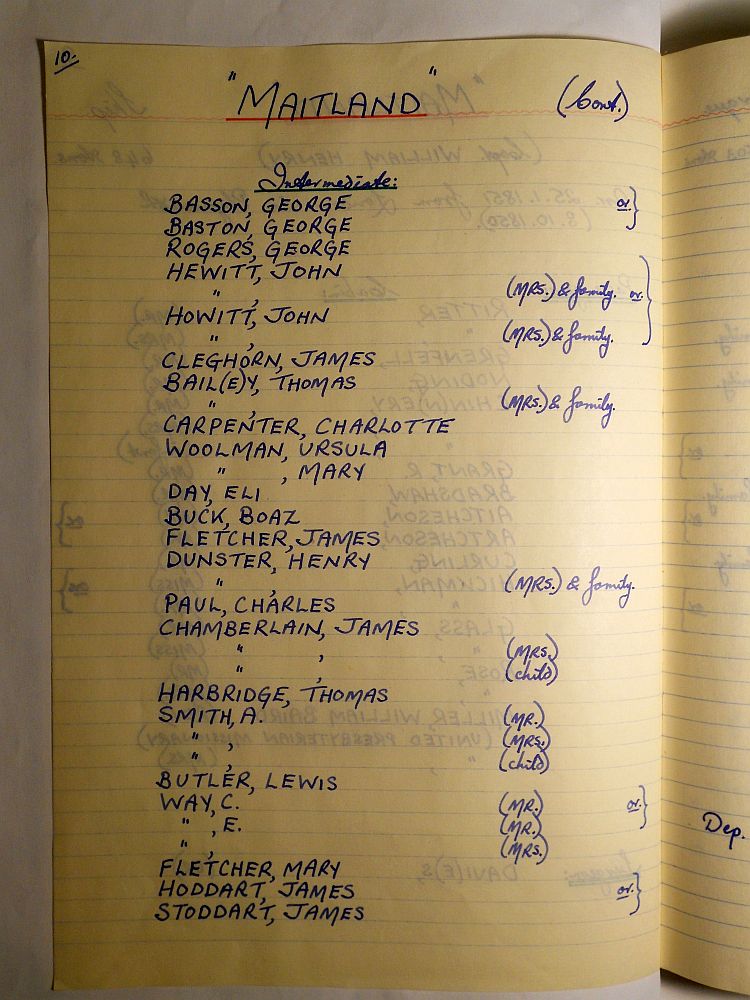 10.
"MAITLAND" (Cont.)
Intermediate:
BASSON, GEORGE or }
BASTON, GEORGE
ROGERS, GEORGE
HEWITT, JOHN
" , (MRS.) & family. or }
HOWITT, JOHN
" , (MRS.) & family.
CLEGHORN, JAMES
BAIL(E)Y, THOMAS
" , (MRS.) & family.
CARPENTER, CHARLOTTE
WOOLMAN, URSULA
" , MARY
DAY, ELI
BUCK, BOAZ
FLETCHER, JAMES
DUNSTER, HENRY
" , (MRS.) & family.
PAUL, CHARLES
CHAMBERLAIN, JAMES
" , (MRS.)
" , (child)
HARBRIDGE, THOMAS
SMITH, A. (MR.)
" , (MRS.)
" , (child)
BUTLER, LEWIS
WAY, C. (MR.) or }
" , E. (MR.)
" , (MRS.)
FLETCHER, MARY
HODDART, JAMES or. }
STODDART, JAMES
Dep.